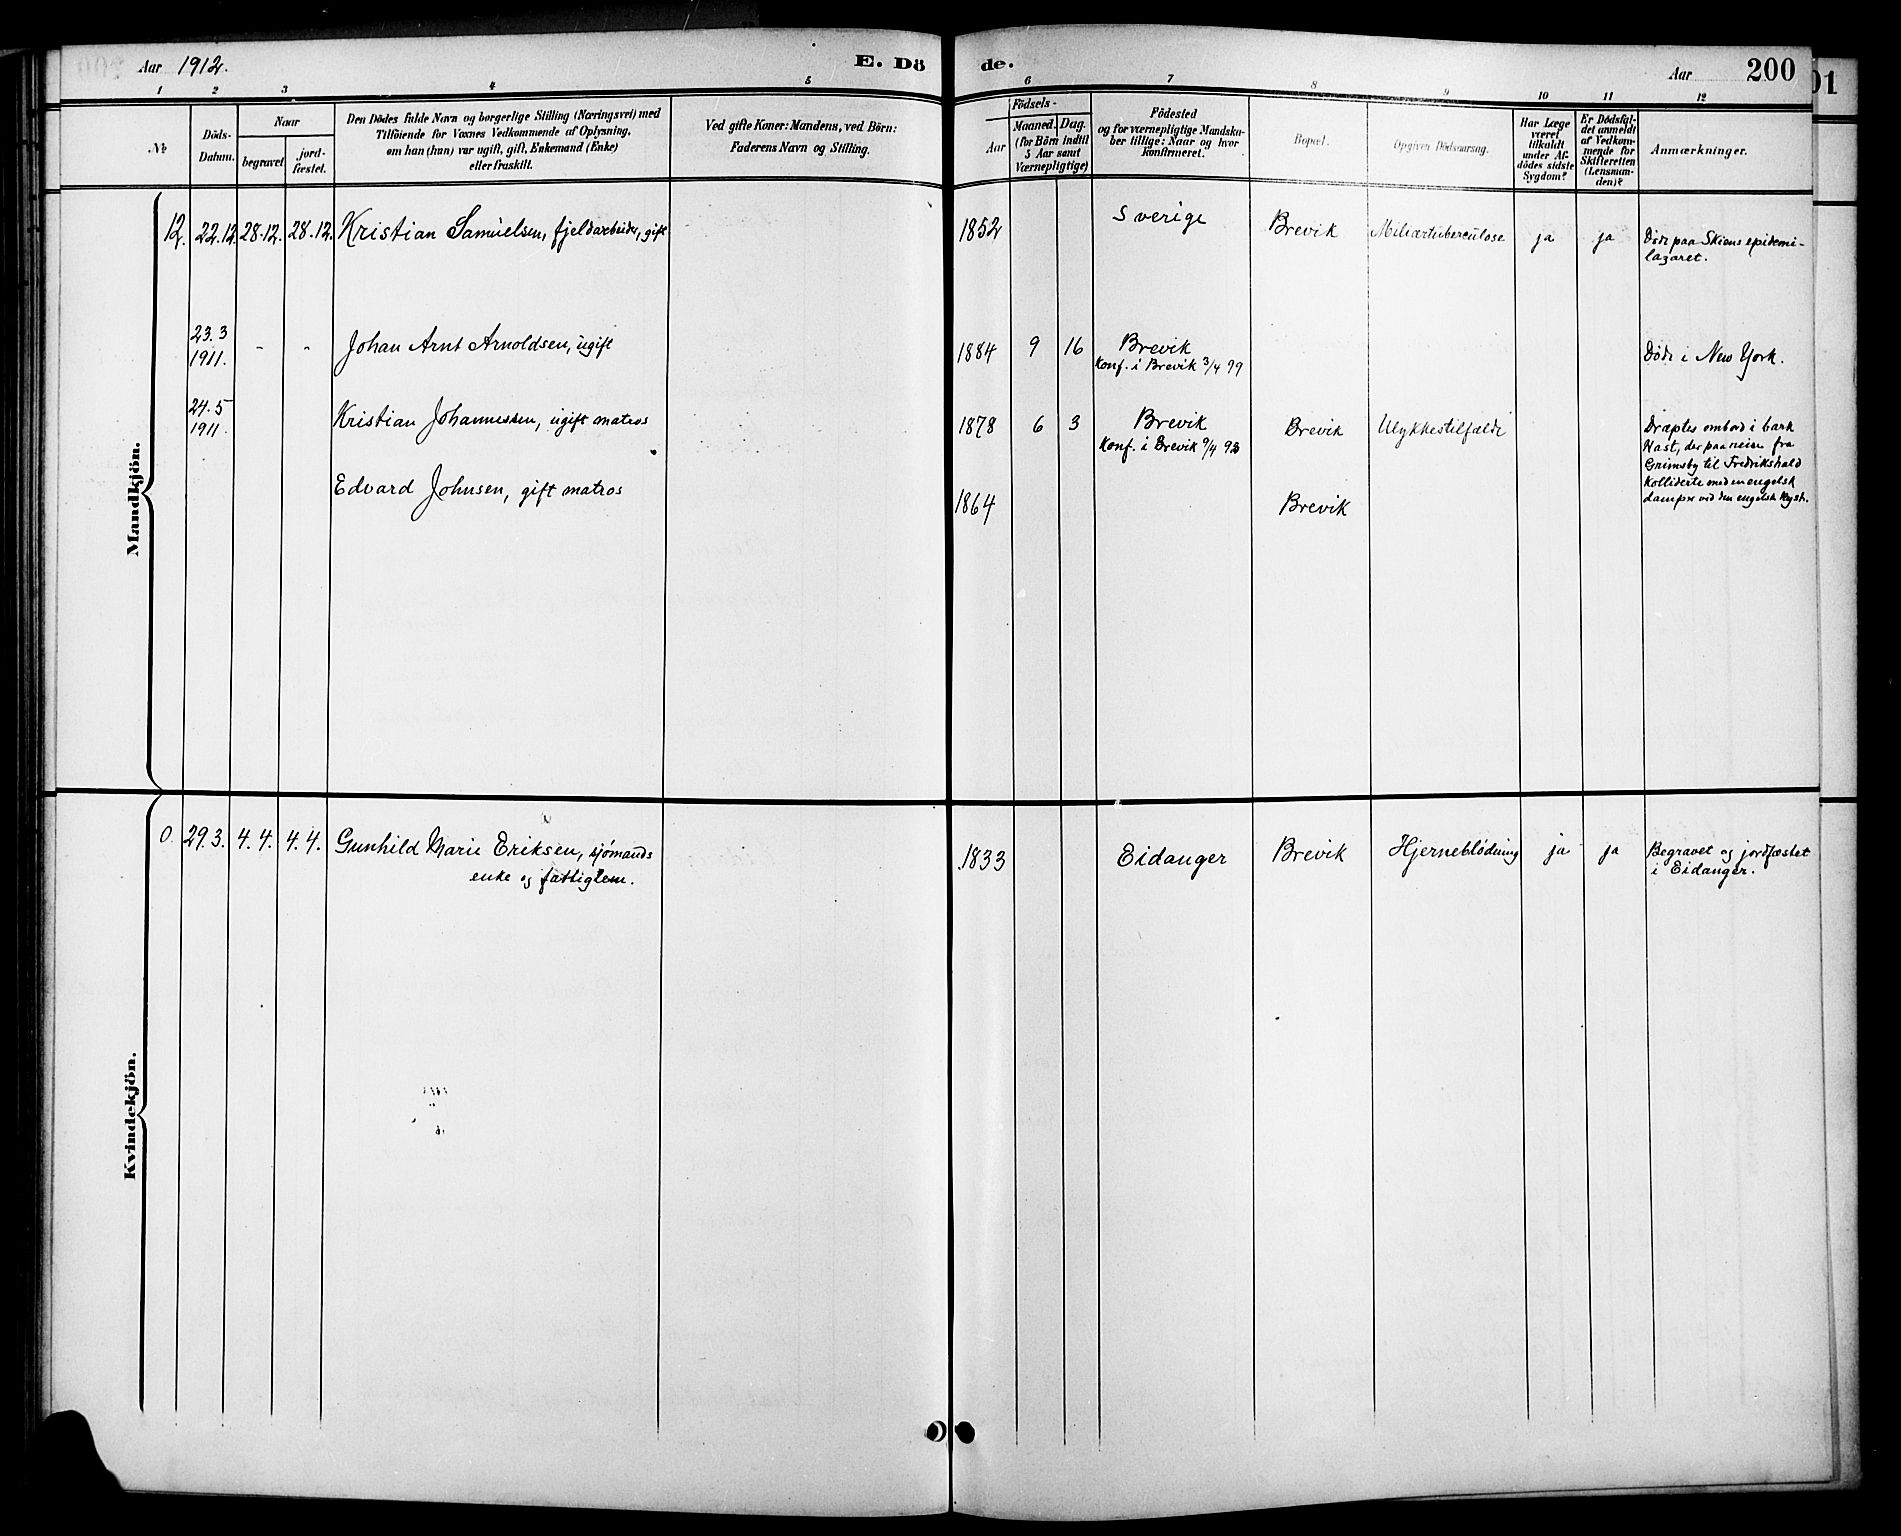 Aar 1912.
E. Dö
de.
Aar
200
01
1 2 3 4 5 6 7 8 9 10 11 12
No
Döds-
Datum.
Naar
begravet
jord-
fæstet.
Den Dödes fulde Navn og borgerlige Stilling (Næringsvei) med
Tilföiende for Voxnes Vedkommende af Oplysning,
om han (hun) var ugift, gift, Enkemand (Enke)
eller fraskilt.
Ved gifte Koner: Mandens, ved Börn:
Faderens Navn og Stilling.
Födsels-
Aar
Maaned.
Dag.
(for Börn indtil
5 Aar samt
Værnepligtige)
Födested
og for værnepligtige Mandska-
ber tillige: Naar og hvor
konfirmeret.
Bopæl.
Opgiven Dödsaarsag.
Har Læge
været
tilkaldt
under Af-
dödes sidste
Sygdom?
Er Dödsfal-
det anmeldt
af Vedkom-
mende for
Skifteretten
(Lensman-
den)?
Anmærkninger.
Mandkjön.
12. 22.12 28.12. 28.12. Kristian Samuelsen, fjeldarbeider, gift 1852 Sverige Brevik Miliærtuberculose ja ja Döde paa Skiens epidemi-
lazaret.
23.3
1911. - - Johan Arnt Arnoldsen, ugift 1884 9 16 Brevik Döde i New York.
Konf. i Brevik 3/4 99
24.5
1911. Kristian Johannessen, ugift matros 1878 6 3 Brevik Brevik Ulykkestilfælde Dræptes ombord i bark
Konf. i Brevik 9/4 93
Hast, der paa reise fra
Grimsby til Fredrikshald
kolliderte med en engelsk
damper ved den engelsk kyst.
Edvard Johnsen, gift matros 1864 Brevik
Kvindekjön.
0. 29.3. 4.4. 4.4. Gunhild Marie Eriksen, sjömands 1833 Eidanger Brevik Hjerneblödning ja ja Begravet og jordfæstet
enke og fattiglem. i Eidanger.